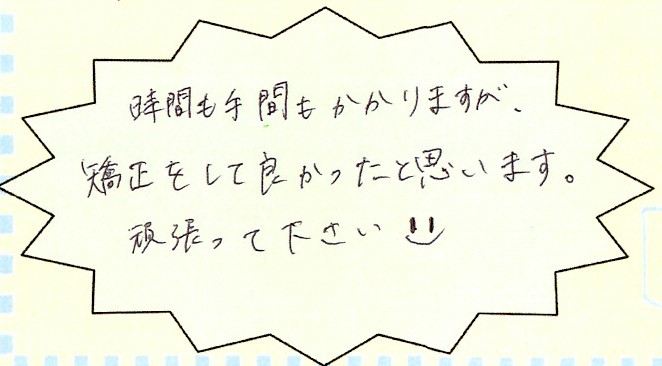 時間も手間もかかりますが、
矯正をして良かったと思います。
頑張って下さい